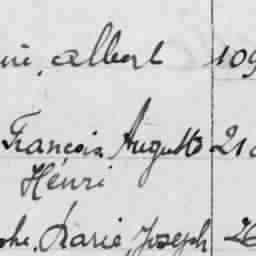 Albert 109
François Auguste 21
Hénri
Marie Joseph